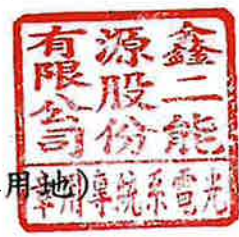 鑫二能
源股份
有限公司
光電系統專用章
用地)